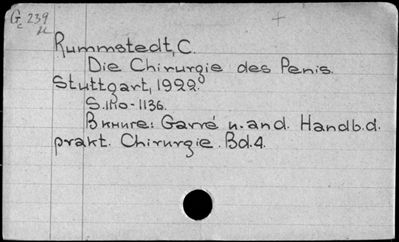 G 239
Rummstedt, C.
Die Chirurgie des Penis.
Stuttgart, 1922.
S. 1120-1136.
В книге: Garré u. and. Handb. d.
prakt. Chirurgie. Bd. 4.